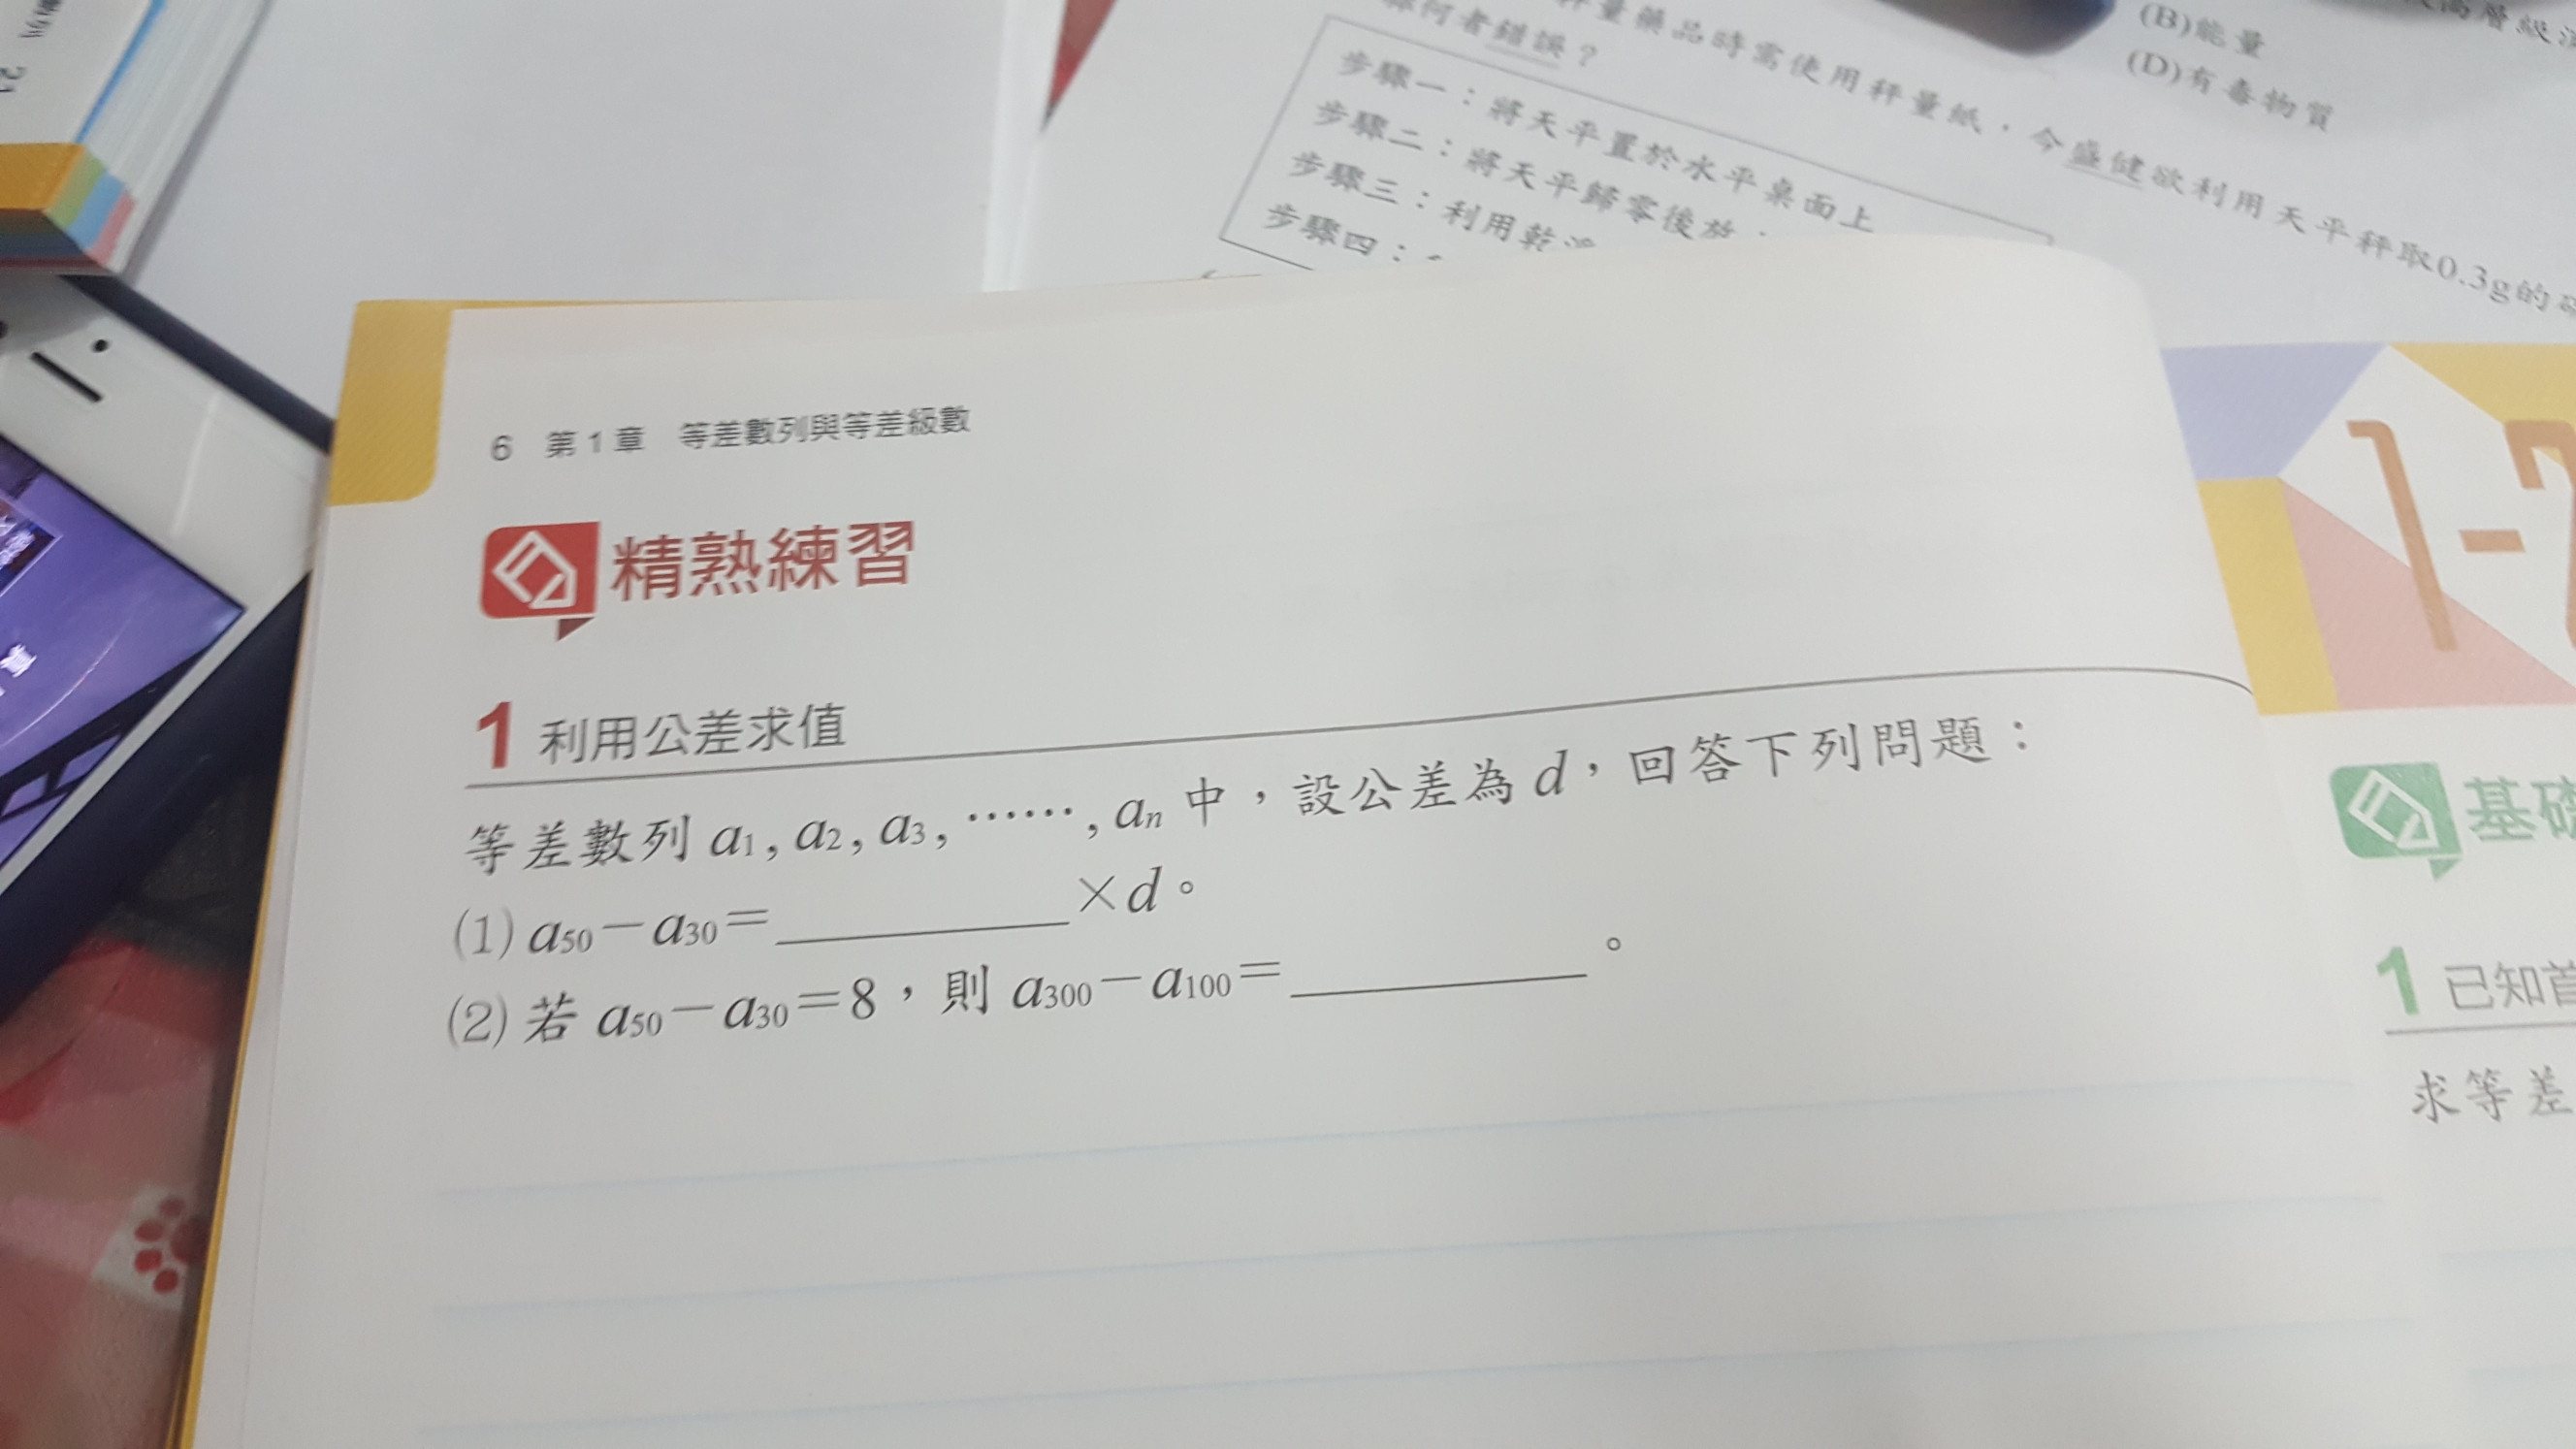 (B)能量
(D)有毒物質
秤量藥品時需使用秤量紙，今盛健欲利用天平秤取0.3g的
何者錯誤？
步驟一：將天平置於水平桌面上
步驟二：將天平歸零後放
步驟三：利用乾
步驟四：
6 第1章 等差數列與等差級數
精熟練習
1 利用公差求值
等差數列 a₁, a₂, a₃, ……, aₙ 中，設公差為 d，回答下列問題：
(1) a₅₀－a₃₀＝________×d。
(2) 若 a₅₀－a₃₀＝8，則 a₃₀₀－a₁₀₀＝________。
1-
基礎
1 已知首
求等差